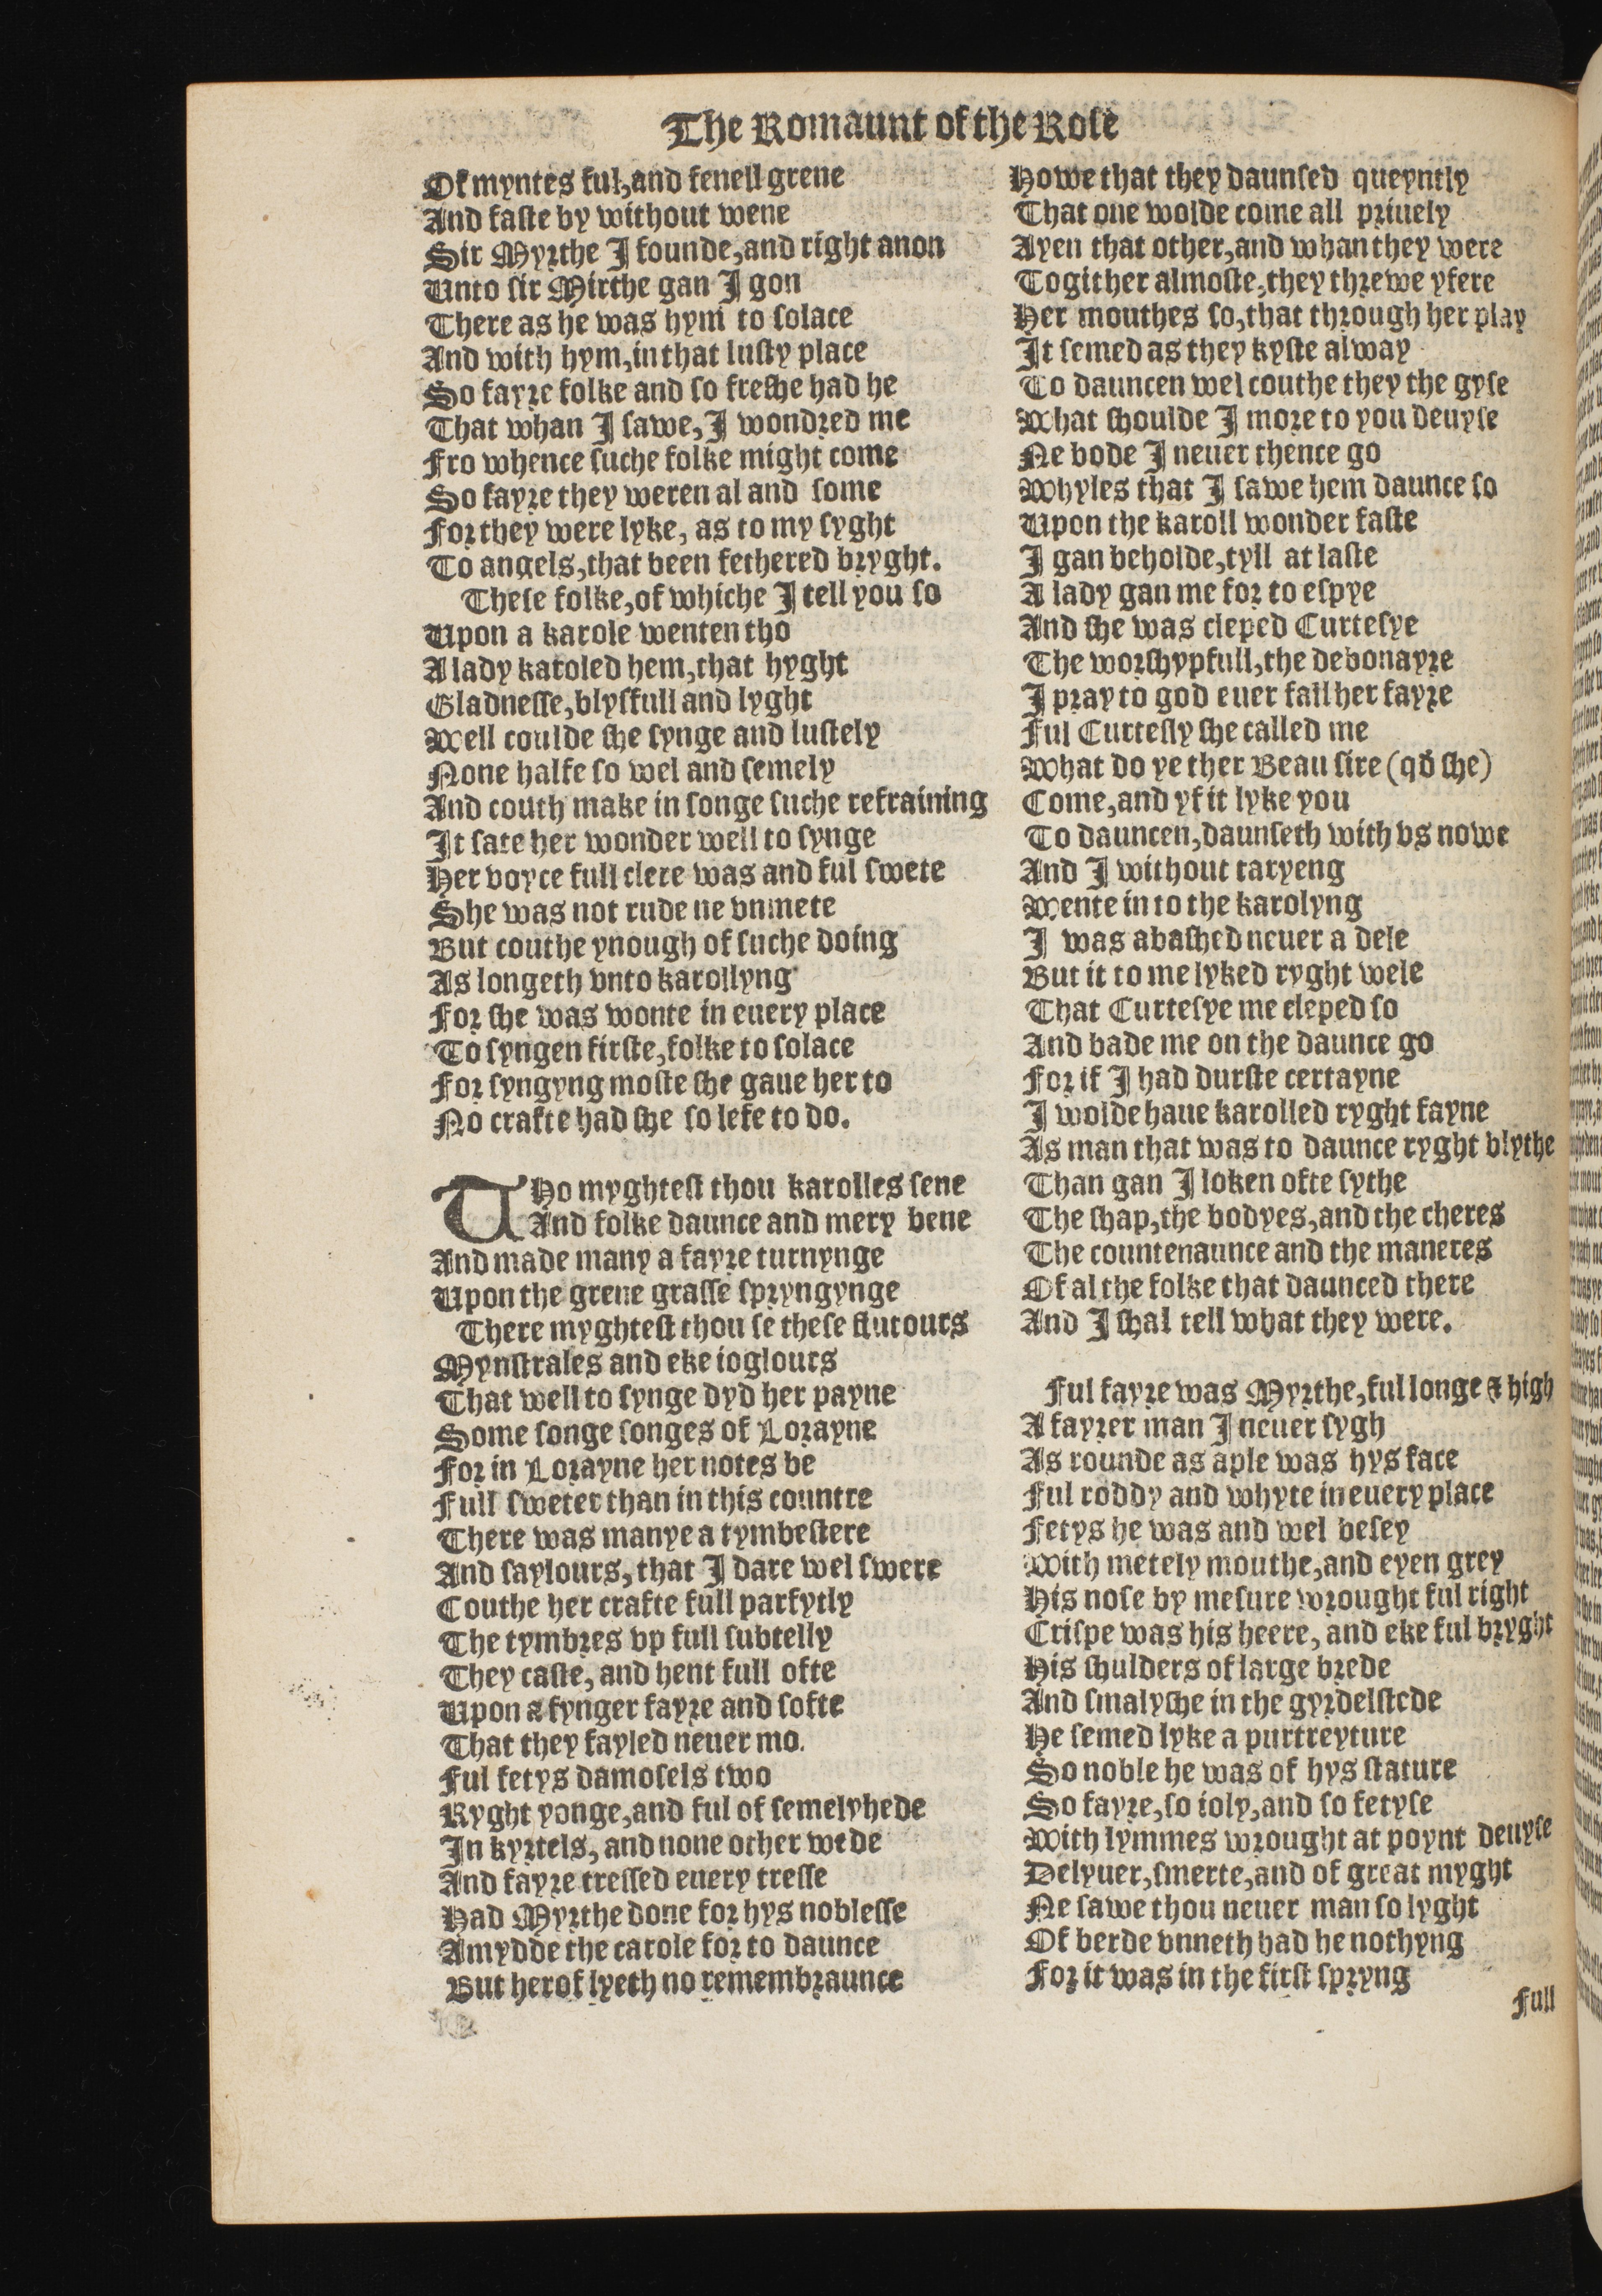 The Romaunt of the Rose
Of myntes ful, and fenell grene
And faste by without wene
Sir Myrthe I founde, and right anon
Unto sir Mirthe gan I gon
There as he was hym to solace
And with hym, in that lusty place
So fayre folke and so freshe had he
That whan I sawe, I wondred me
Fro whence suche folke might come
So fayre they weren al and some
For they were lyke, as to my syght
To angels, that been fethered bryght.
These folke, of whiche I tell you so
Upon a karole wenten tho
A lady karoled hem, that hyght
Gladnesse, blysfull and lyght
Well coulde she synge and lustely
None halfe so wel and semely
And couth make in songe suche refraining
It sate her wonder well to synge
Her voyce full clere was and ful swete
She was not rude ne vnmete
But couthe ynough of suche doing
As longeth vnto karollyng
For she was wonte in euery place
To syngen firste, folke to solace
For syngyng moste she gaue her to
No crafte had she so lefe to do.
THo myghtest thou karolles sene
And folke daunce and mery bene
And made many a fayre turnynge
Upon the grene grasse spryngynge
There myghtest thou se these flutours
Mynstrales and eke ioglours
That well to synge dyd her payne
Some songe songes of Lorayne
For in Lorayne her notes be
Full sweter than in this countre
There was manye a tymbestere
And saylours, that I dare wel swere
Couthe her crafte full parfytly
The tymbres vp full subtelly
They caste, and hent full ofte
Upon a fynger fayre and softe
That they fayled neuer mo.
Ful fetys damosels two
Ryght yonge, and ful of semelyhede
In kyrtels, and none other wede
And fayre tressed euery tresse
Had Myrthe done for hys noblesse
Amydde the carole for to daunce
But herof lyeth no remembraunce
Howe that they daunsed queyntly
That one wolde come all priuely
Ayen that other, and whan they were
Togither almoste, they threwe yfere
Her mouthes so, that through her play
It semed as they kyste alway
To dauncen wel couthe they the gyse
What shoulde I more to you deuyse
Ne bode I neuer thence go
Whyles that I sawe hem daunce so
Upon the karoll wonder faste
I gan beholde, tyll at laste
A lady gan me for to espye
And she was cleped Curtesye
The worshypfull, the debonayre
I pray to god euer fall her fayre
Ful Curtesly she called me
What do ye ther Beau sire (qd she)
Come, and yf it lyke you
To dauncen, daunseth with vs nowe
And I without taryeng
Wente in to the karolyng
I was abashed neuer a dele
But it to me lyked ryght wele
That Curtesye me cleped so
And bade me on the daunce go
For if I had durste certayne
I wolde haue karolled ryght fayne
As man that was to daunce ryght blythe
Than gan I loken ofte sythe
The shap, the bodyes, and the cheres
The countenaunce and the maneres
Of al the folke that daunced there
And I shal tell what they were.
Ful fayre was Myrthe, ful longe & high
A fayrer man I neuer sygh
As rounde as aple was hys face
Ful roddy and whyte in euery place
Fetys he was and wel besey
With metely mouthe, and eyen grey
His nose by mesure wrought ful right
Crispe was his heere, and eke ful bryght
His shulders of large brede
And smalyshe in the gyrdelstede
He semed lyke a purtreyture
So noble he was of hys stature
So fayre, so ioly, and so fetyse
With lymmes wrought at poynt deuyse
Delyuer, smerte, and of great myght
Ne sawe thou neuer man so lyght
Of berde vnneth had he nothyng
For it was in the first spryng
Full